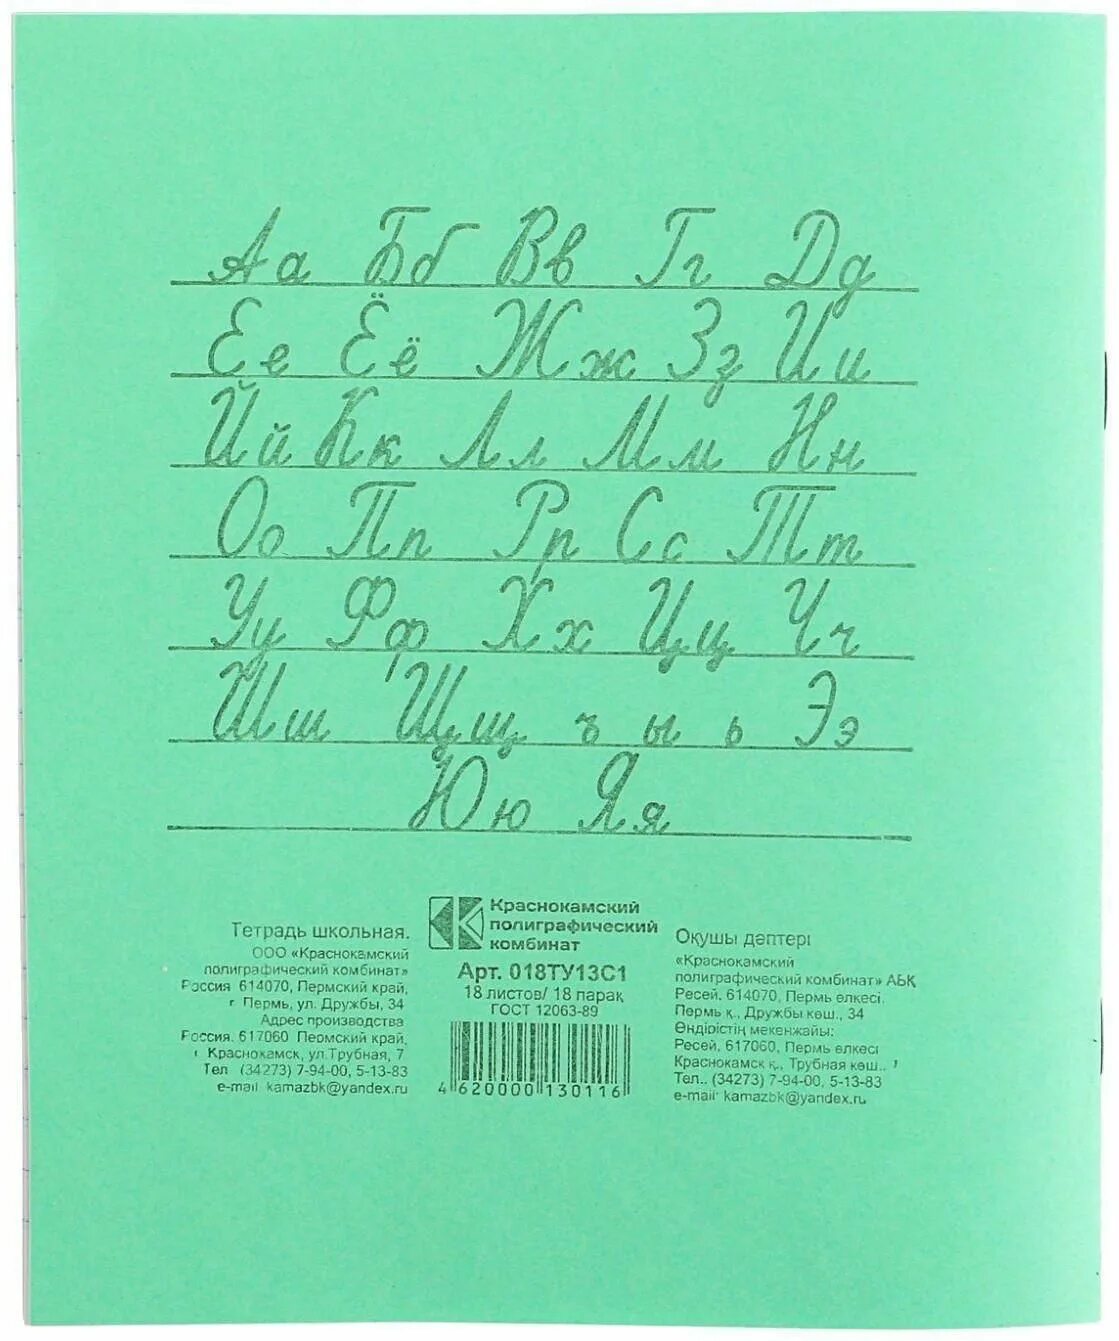 Аа Бб Вв Гг Дд
Ее Ёё Жж Зз Ии
Йй Кк Лл Мм Нн
Оо Пп Рр Сс Тт
Уу Фф Хх Цц Чч
Шш Щщ ъ ы ь Ээ
Юю Яя
Краснокамский
полиграфический
комбинат
Арт. 018ТУ13С1
18 листов/ 18 парақ
ГОСТ 12063-89
4 620000 130116
Тетрадь школьная.
ООО «Краснокамский
полиграфический комбинат»
Россия 614070, Пермский край,
г Пермь, ул. Дружбы, 34
Адрес производства
Россия. 617060 Пермский край,
г Краснокамск, ул.Трубная, 7
Тел (34273) 7-94-00, 5-13-83
e-mail kamazbk@yandex.ru
Оқушы дәптері
«Краснокамский
полиграфический комбинат» АБҚ
Ресей. 614070, Пермь өлкесі,
Пермь қ., Дружбы көш., 34
Өндірістің мекенжайы:
Ресей, 617060, Пермь өлкесі
Краснокамск қ., Трубная көш.. 7
Тел.. (34273) 7-94-00, 5-13-83
e-mail: kamazbk@yandex.ru